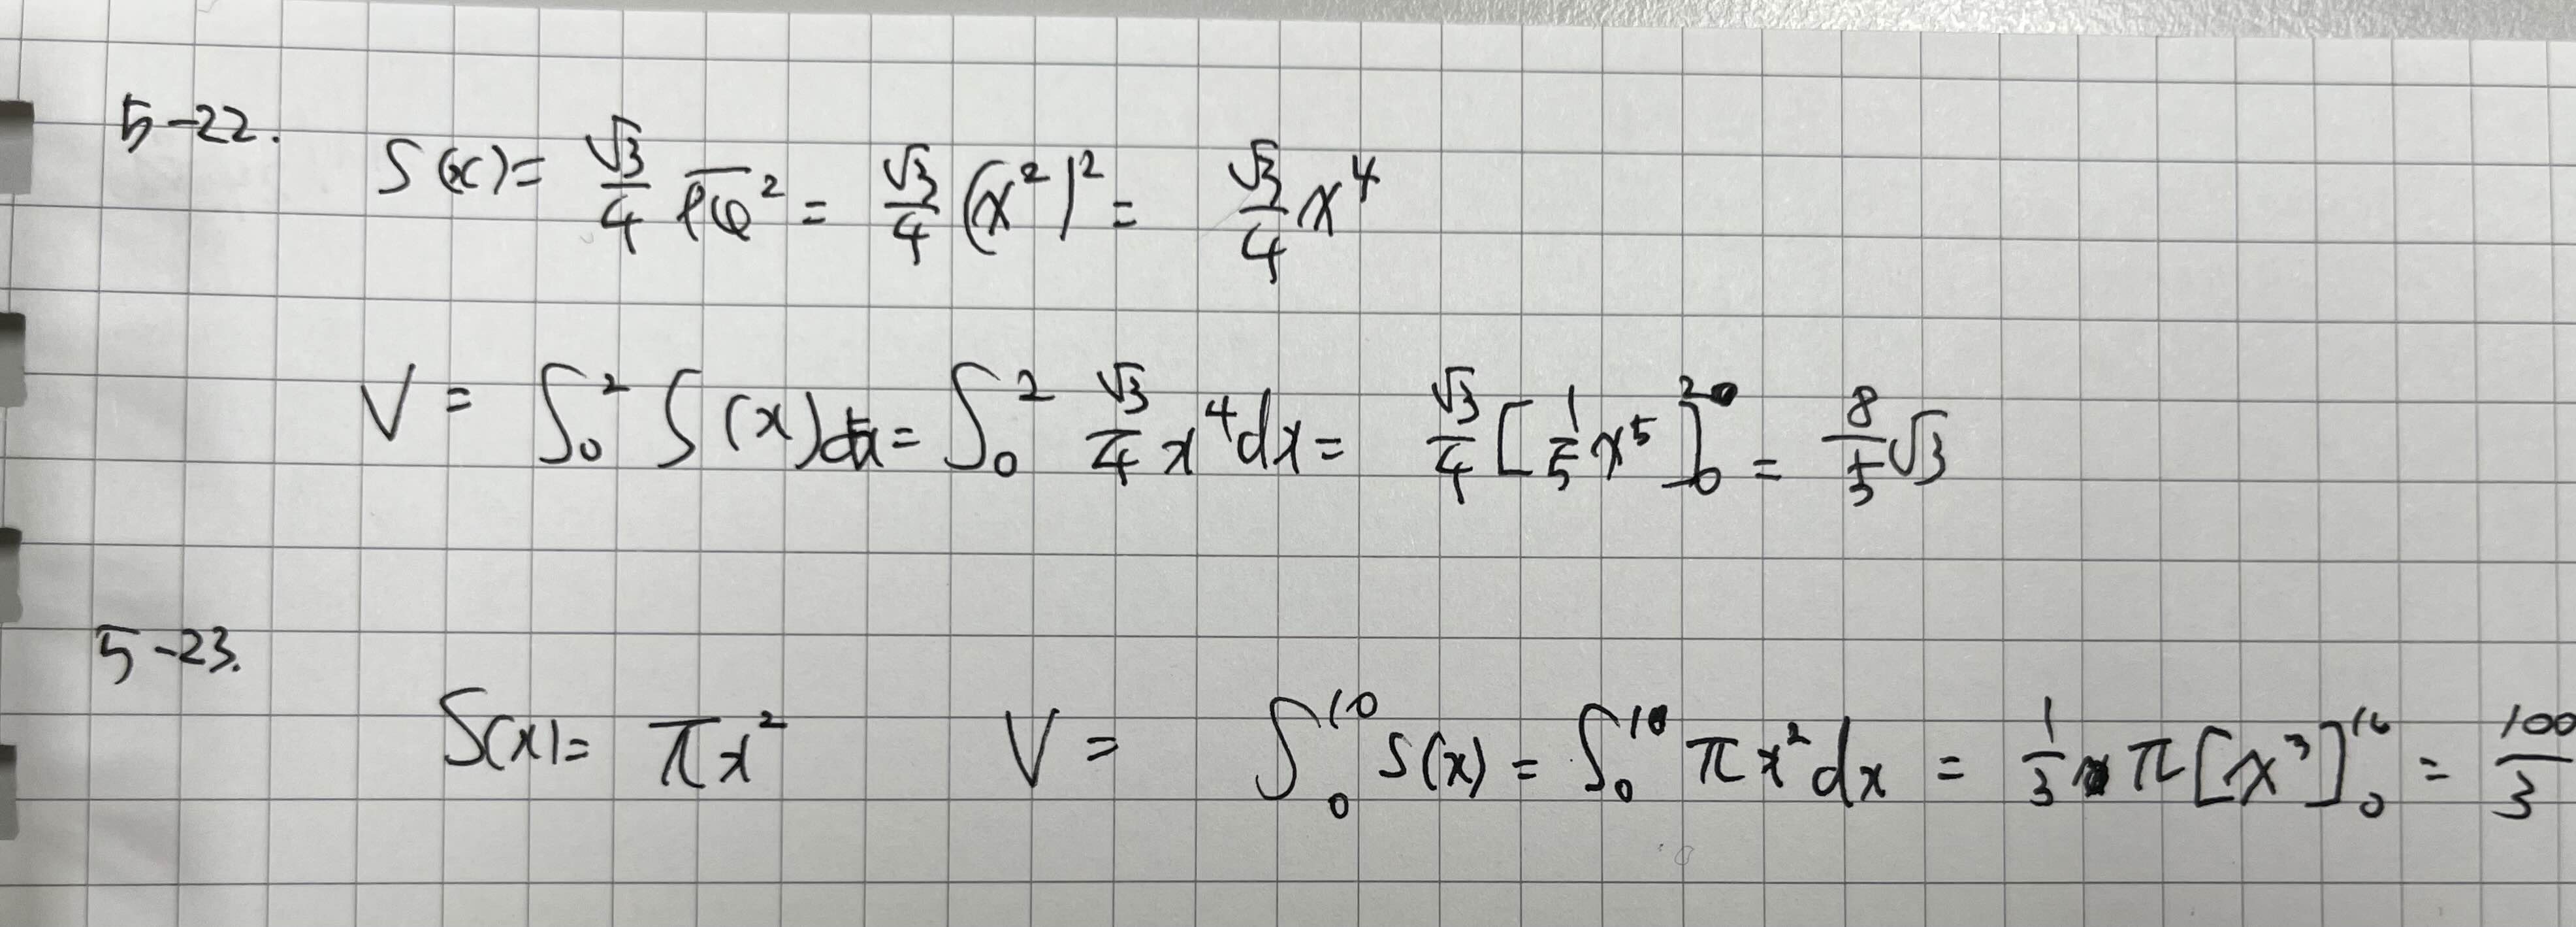 5-22.
S(x) = √3/4 P̅Q̅² = √3/4 (x²)² = √3/4 x⁴
V = ∫₀² S(x)dx = ∫₀² √3/4 x⁴dx = √3/4 [1/5 x⁵]₀² = 8/5 √3
5-23.
S(x) = πx² V = ∫₀¹⁰ S(x) = ∫₀¹⁰ πx²dx = 1/3 π[x³]₀¹⁰ = 100/3